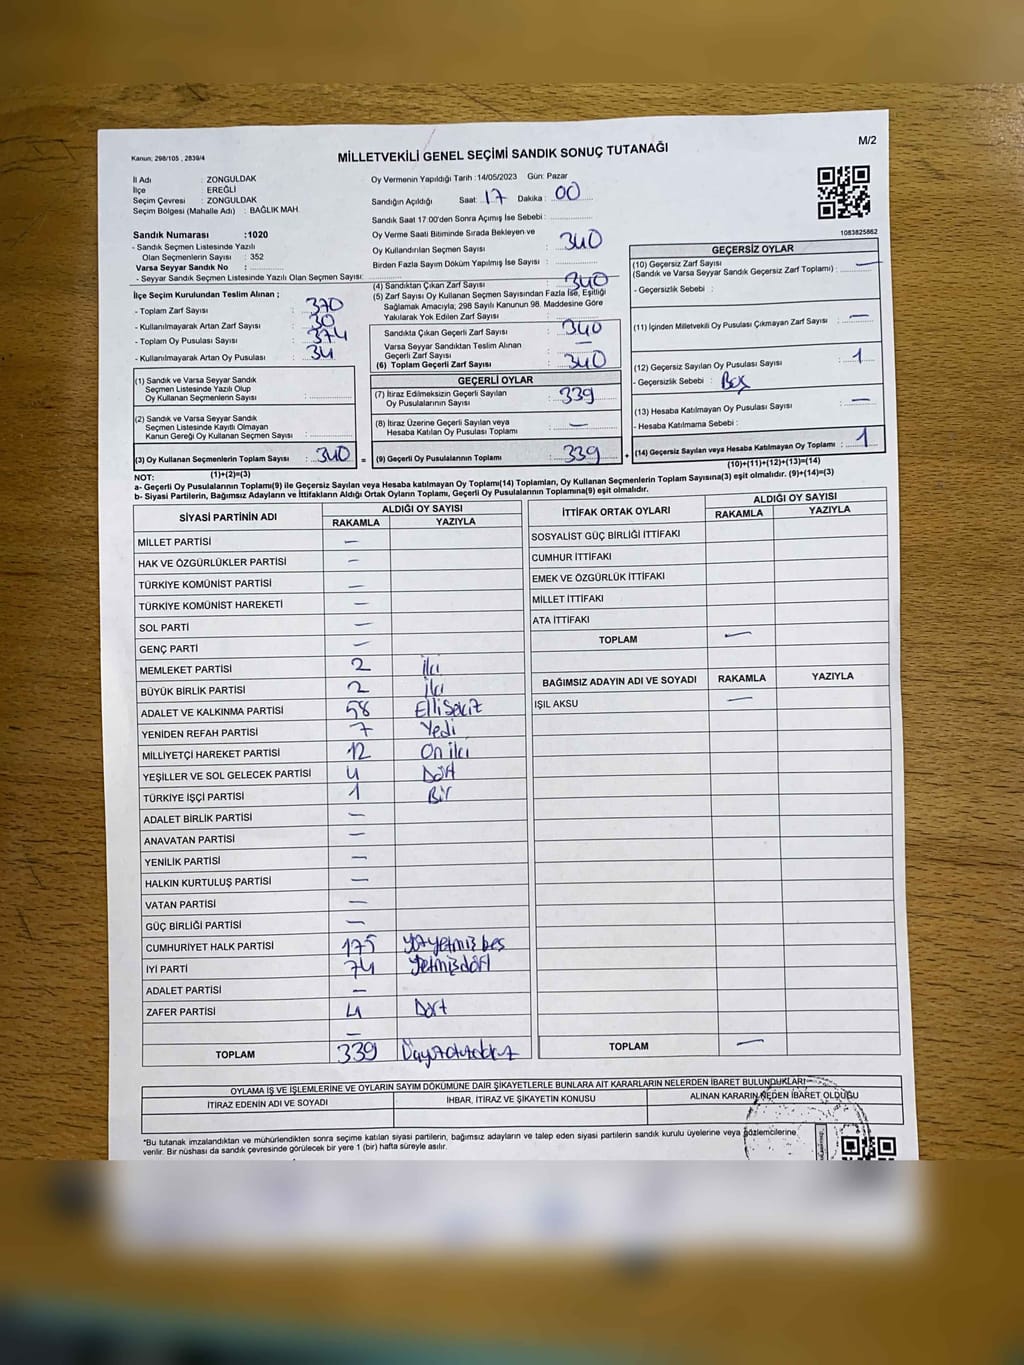 Kanun; 298/105 , 2839/4
MİLLETVEKİLİ GENEL SEÇİMİ SANDIK SONUÇ TUTANAĞI
M/2
İl Adı : ZONGULDAK
İlçe : EREĞLİ
Seçim Çevresi : ZONGULDAK
Seçim Bölgesi (Mahalle Adı) : BAĞLIK MAH.
Sandık Numarası :1020
- Sandık Seçmen Listesinde Yazılı
Olan Seçmenlerin Sayısı : 352
Varsa Seyyar Sandık No :
- Seyyar Sandık Seçmen Listesinde Yazılı Olan Seçmen Sayısı:
İlçe Seçim Kurulundan Teslim Alınan ;
- Toplam Zarf Sayısı : 370
- Kullanılmayarak Artan Zarf Sayısı : 30
- Toplam Oy Pusulası Sayısı : 374
- Kullanılmayarak Artan Oy Pusulası : 34
(1) Sandık ve Varsa Seyyar Sandık
Seçmen Listesinde Yazılı Olup
Oy Kullanan Seçmenlerin Sayısı :
(2) Sandık ve Varsa Seyyar Sandık
Seçmen Listesinde Kayıtlı Olmayan
Kanun Gereği Oy Kullanan Seçmen Sayısı :
(3) Oy Kullanan Seçmenlerin Toplam Sayısı : 340
(1)+(2)=(3)
Oy Vermenin Yapıldığı Tarih : 14/05/2023 Gün: Pazar
Sandığın Açıldığı Saat : 17 Dakika : 00
Sandık Saat 17.00'den Sonra Açılmış İse Sebebi :
Oy Verme Saati Bitiminde Sırada Bekleyen ve
Oy Kullandırılan Seçmen Sayısı : 340
Birden Fazla Sayım Döküm Yapılmış İse Sayısı :
(4) Sandıktan Çıkan Zarf Sayısı : 340
(5) Zarf Sayısı Oy Kullanan Seçmen Sayısından Fazla İse, Eşitliği
Sağlamak Amacıyla; 298 Sayılı Kanunun 98. Maddesine Göre
Yakılarak Yok Edilen Zarf Sayısı :
Sandıkta Çıkan Geçerli Zarf Sayısı : 340
Varsa Seyyar Sandıktan Teslim Alınan
Geçerli Zarf Sayısı : —
(6) Toplam Geçerli Zarf Sayısı : 340
GEÇERLİ OYLAR
(7) İtiraz Edilmeksizin Geçerli Sayılan
Oy Pusulalarının Sayısı : 339
(8) İtiraz Üzerine Geçerli Sayılan veya
Hesaba Katılan Oy Pusulası Toplamı : —
= (9) Geçerli Oy Pusulalarının Toplamı : 339
1083825862
GEÇERSİZ OYLAR
(10) Geçersiz Zarf Sayısı
(Sandık ve Varsa Seyyar Sandık Geçersiz Zarf Toplamı) : —
- Geçersizlik Sebebi :
(11) İçinden Milletvekili Oy Pusulası Çıkmayan Zarf Sayısı : —
(12) Geçersiz Sayılan Oy Pusulası Sayısı : 1
- Geçersizlik Sebebi : Boş
(13) Hesaba Katılmayan Oy Pusulası Sayısı : —
- Hesaba Katılmama Sebebi :
+ (14) Geçersiz Sayılan veya Hesaba Katılmayan Oy Toplamı : 1
(10)+(11)+(12)+(13)=(14)
NOT:
a- Geçerli Oy Pusulalarının Toplamı(9) ile Geçersiz Sayılan veya Hesaba katılmayan Oy Toplamı(14) Toplamları, Oy Kullanan Seçmenlerin Toplam Sayısına(3) eşit olmalıdır. (9)+(14)=(3)
b- Siyasi Partilerin, Bağımsız Adayların ve İttifakların Aldığı Ortak Oyların Toplamı, Geçerli Oy Pusulalarının Toplamına(9) eşit olmalıdır.
SİYASİ PARTİNİN ADI ALDIĞI OY SAYISI
RAKAMLA YAZIYLA
MİLLET PARTİSİ —
HAK VE ÖZGÜRLÜKLER PARTİSİ —
TÜRKİYE KOMÜNİST PARTİSİ —
TÜRKİYE KOMÜNİST HAREKETİ —
SOL PARTİ —
GENÇ PARTİ —
MEMLEKET PARTİSİ 2 İki
BÜYÜK BİRLİK PARTİSİ 2 İki
ADALET VE KALKINMA PARTİSİ 58 Elli Sekiz
YENİDEN REFAH PARTİSİ 7 Yedi
MİLLİYETÇİ HAREKET PARTİSİ 12 On iki
YEŞİLLER VE SOL GELECEK PARTİSİ 4 Dört
TÜRKİYE İŞÇİ PARTİSİ 1 Bir
ADALET BİRLİK PARTİSİ —
ANAVATAN PARTİSİ —
YENİLİK PARTİSİ —
HALKIN KURTULUŞ PARTİSİ —
VATAN PARTİSİ —
GÜÇ BİRLİĞİ PARTİSİ —
CUMHURİYET HALK PARTİSİ 175 Yüzyetmiş beş
İYİ PARTİ 74 Yetmişdört
ADALET PARTİSİ —
ZAFER PARTİSİ 4 Dört
—
TOPLAM 339 Üçyüzotuzdokuz
İTTİFAK ORTAK OYLARI ALDIĞI OY SAYISI
RAKAMLA YAZIYLA
SOSYALİST GÜÇ BİRLİĞİ İTTİFAKI
CUMHUR İTTİFAKI
EMEK VE ÖZGÜRLÜK İTTİFAKI
MİLLET İTTİFAKI
ATA İTTİFAKI
TOPLAM —
BAĞIMSIZ ADAYIN ADI VE SOYADI RAKAMLA YAZIYLA
IŞIL AKSU —
TOPLAM —
OYLAMA İŞ VE İŞLEMLERİNE VE OYLARIN SAYIM DÖKÜMÜNE DAİR ŞİKAYETLERLE BUNLARA AİT KARARLARIN NELERDEN İBARET BULUNDUKLARI
İTİRAZ EDENİN ADI VE SOYADI İHBAR, İTİRAZ VE ŞİKAYETİN KONUSU ALINAN KARARIN NEDEN İBARET OLDUĞU
*Bu tutanak imzalandıktan ve mühürlendikten sonra seçime katılan siyasi partilerin, bağımsız adayların ve talep eden siyasi partilerin sandık kurulu üyelerine veya gözlemcilerine
verilir. Bir nüshası da sandık çevresinde görülecek bir yere 1 (bir) hafta süreyle asılır.